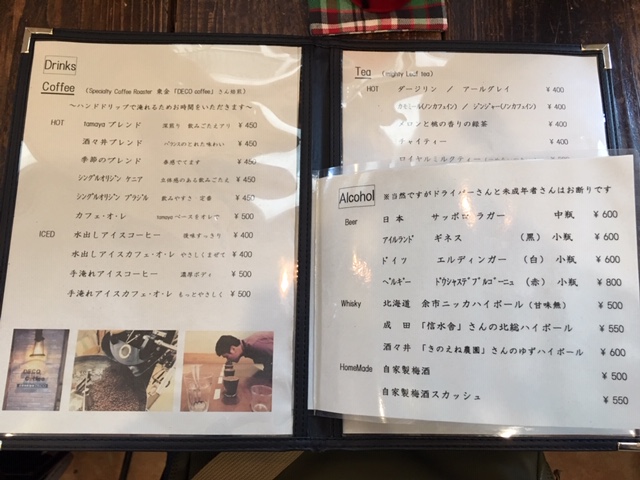 Drinks
Coffee (Specialty Coffee Roaster 東金「DECO coffee」さん焙煎)
～ハンドドリップで淹れるためお時間をいただきます～
HOT tamaya ブレンド 深煎り 飲みごたえアリ ¥ 450
酒々井ブレンド バランスのとれた味わい ¥ 450
季節のブレンド 季感でてます ¥ 450
シングルオリジン ケニア 立体感のある飲みごたえ ¥ 450
シングルオリジン ブラジル 飲みやすさ 定番 ¥ 450
カフェ・オ・レ tamayaベースをオレで ¥ 500
ICED 水出しアイスコーヒー 後味すっきり ¥ 400
水出しアイスカフェ・オ・レ やさしくまぜて ¥ 400
手淹れアイスコーヒー 濃厚ボディ ¥ 500
手淹れアイスカフェ・オ・レ もっとやさしく ¥ 500
DECO
Coffee
Tea (mighty Leaf tea)
HOT ダージリン / アールグレイ ¥ 400
カモミール(ノンカフェイン) / ジンジャー(ノンカフェイン) ¥ 400
メロンと桃の香りの緑茶 ¥ 400
チャイティー ¥ 400
ロイヤルミルクティー
Alcohol ※当然ですがドライバーさんと未成年者さんはお断りです
Beer 日本 サッポロ ラガー 中瓶 ¥ 600
アイルランド ギネス (黒) 小瓶 ¥ 600
ドイツ エルディンガー (白) 小瓶 ¥ 600
ベルギー ドゥシャスデブルゴーニュ (赤) 小瓶 ¥ 800
Whisky 北海道 余市ニッカハイボール (甘味無) ¥ 500
成田 「信水舎」さんの北総ハイボール ¥ 550
酒々井 「きのえね農園」さんのゆずハイボール ¥ 600
HomeMade 自家製梅酒 ¥ 500
自家製梅酒スカッシュ ¥ 550